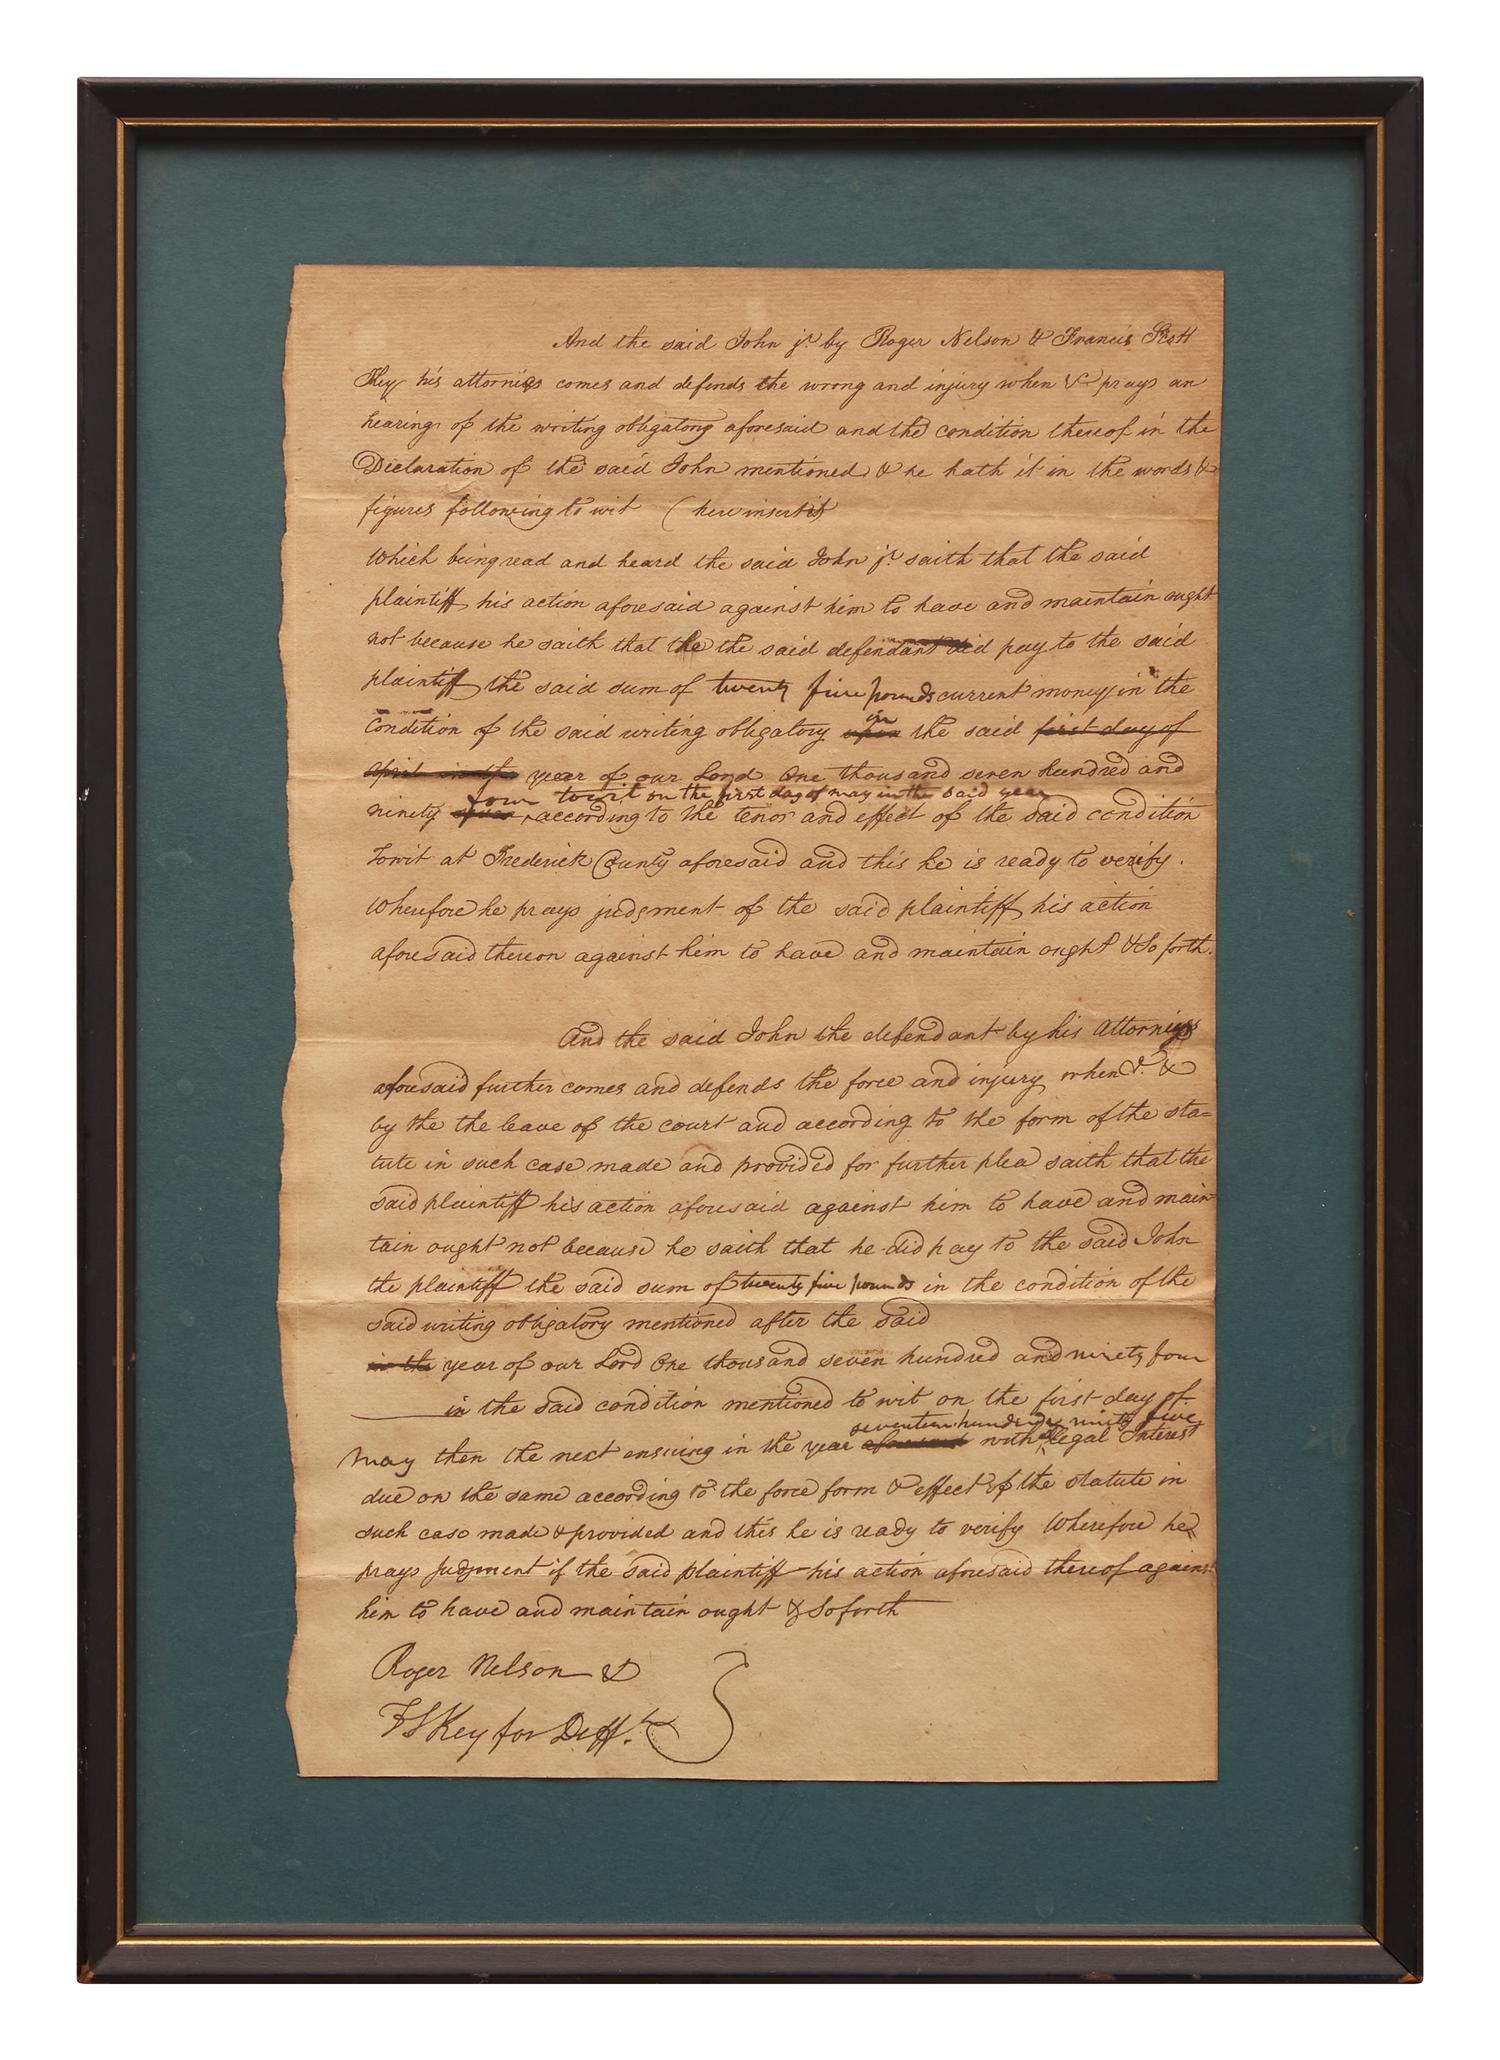 And the said John jr. by Roger Nelson & Francis Scott
Key his attornies comes and defends the wrong and injury when &c prays an
hearing of the writing obligatory aforesaid and the condition thereof in the
Declaration of the said John mentioned & he hath it in the words &
figures following to wit (here insert it)
Which being read and heard the said John jr. saith that the said
plaintiff his action aforesaid against him to have and maintain ought
not because he saith that the the said defendant did pay to the said
plaintiff the said sum of twenty five pounds current money in the
Condition of the said writing obligatory upon in the said first day of
april in the year of our Lord One thousand seven hundred and
four towit on the first day of may in the said year
ninety according to the tenor and effect of the said condition
Towit at Frederick County aforesaid and this he is ready to verify.
Wherefore he prays judgment of the said plaintiff his action
aforesaid thereon against him to have and maintain ought & so forth.
And the said John the defendant by his Attornies
aforesaid further comes and defends the force and injury when &c &
by the the leave of the court and according to the form of the sta=
tute in such case made and provided for further plea saith that the
said plaintiff his action aforesaid against him to have and main
tain ought not because he saith that he did pay to the said John
the plaintiff the said sum of twenty five pounds in the condition of the
said writing obligatory mentioned after the said
in the year of our Lord One thousand seven hundred and ninety four
in the said condition mentioned to wit on the first day of
seventeen hundred & ninety five
May then the next ensuing in the year aforesaid with legal Interest
due on the same according to the force form & effect of the statute in
such case made & provided and this he is ready to verify Wherefore he
prays Judgment if the said plaintiff his action aforesaid thereof against
him to have and maintain ought & so forth
Roger Nelson &
F S Key for Defft.